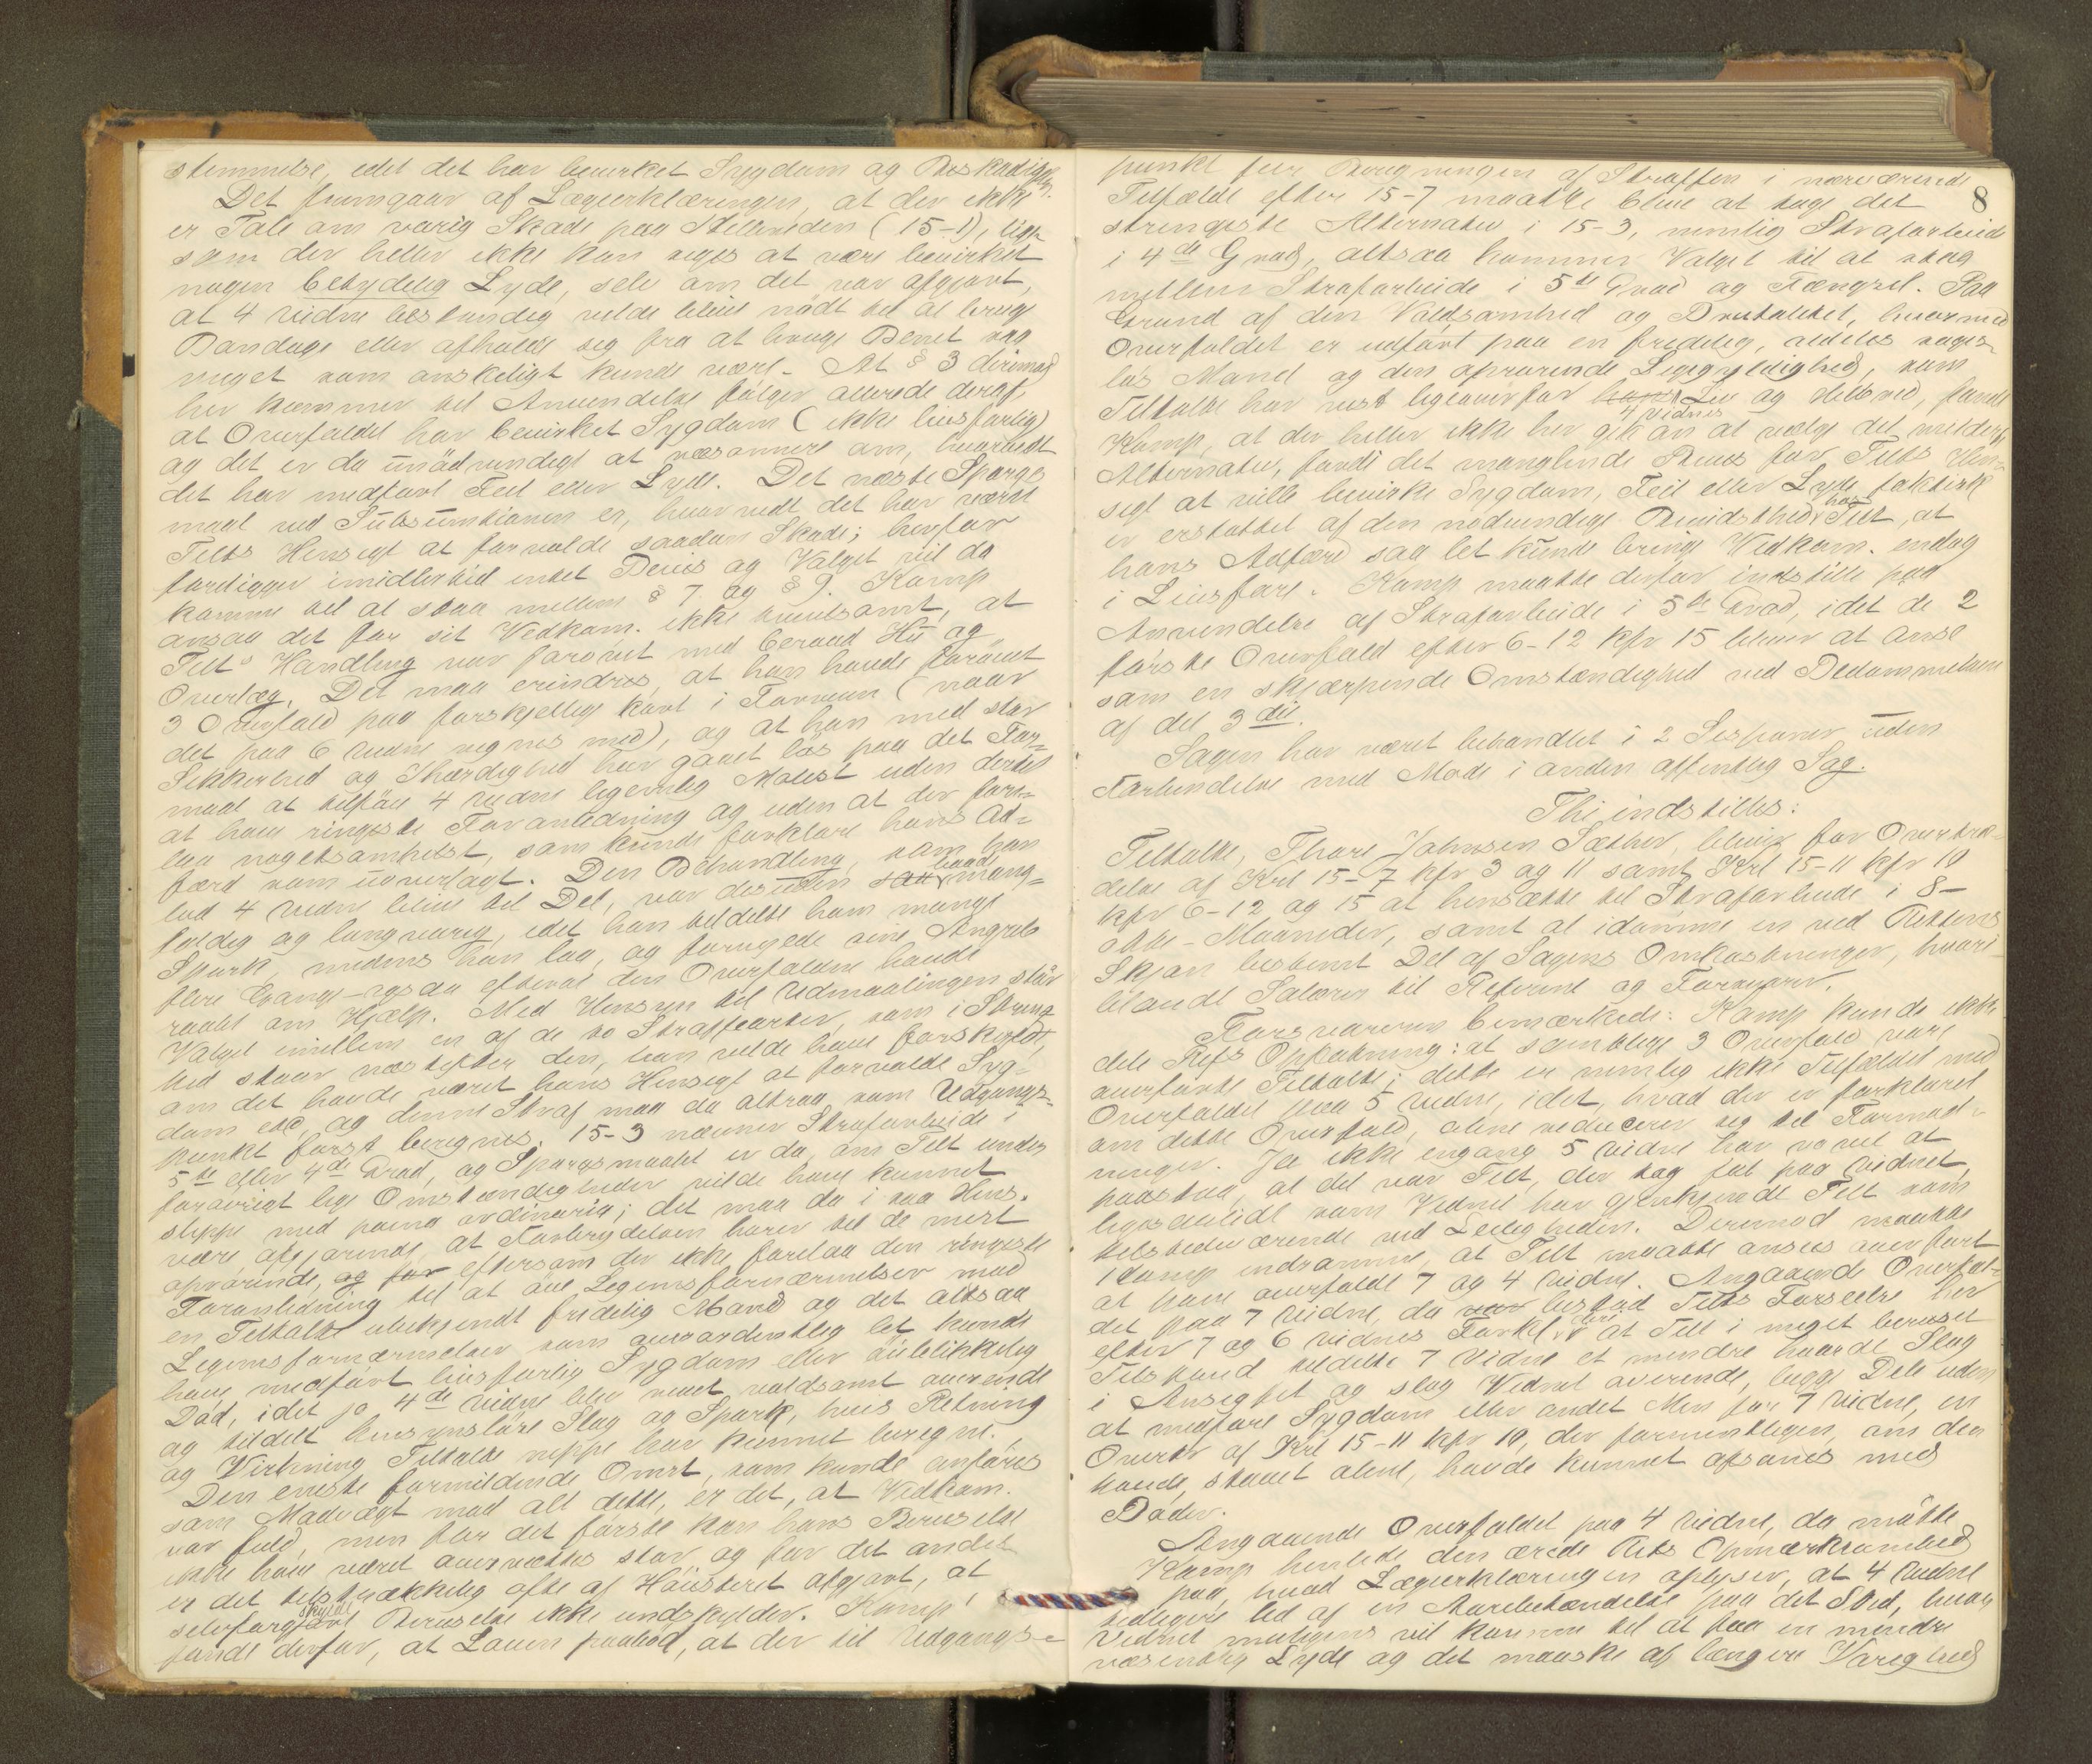 stemmelse, idet det har bevirket Sygdom og Beskadigelse.
Det fremgaar af Lægeerklæringen, at der ikke
er Tale om varig Skade paa Helbreden (15-1), lige-
som der heller ikke kan siges at være bevirket
nogen betydelig Lyde, selv om det var afgjort,
at 4 Vidne bestandig vilde blive nødt til at bruge
Bandage eller afholde sig fra at bruge Benet saa
meget som ønskeligt kunde være. At § 3 derimod
her kommer til Anvendelse følger allerede deraf,
at Overfaldet har bevirket Sygdom (ikke livsfarlig)
og det er da unødvendigt at ræsonnere om, hvorvidt
det har medført Feil eller Lyde. Det næste Spørgs-
maal ved Subsumtionen er, hvorvidt det har været
Tilts Hensigt at forvolde saadan Skade; herfor
foreligger imidlertid intet Bevis og Valget vil da
komme til at staa mellem § 7 og § 9. Kamp
ansaa det for sit Vedkom. ikke tvivlsomt, at
Tilts Handling var forøvet med beraad Hu og
Overlæg. Det maa erindres, at han havde forøvet
3 Overfald paa forskjellige kant i Farveien (naar
det paa 6 Vidne regnes med), og at han med stor
Sikkerhed og Ihærdighed har gaaet løs paa det For-
maal at tilføie 4 Vidne legemlig Molest uden dertil
at have ringeste Foranledning og uden at der fore-
laa nogetsomhelst, som kunde forklare hans Ad-
færd som uoverlagt. Den Behandling, som han
lod 4 Vidne blive til Del, var desuden saa baade mang-
foldig og langvarig, idet han tildelte ham mange
Spark, medens han laa, og fornyede sine Angreb
flere Gange - ogsaa efterat den Overfaldne havde
raabt om Hjælp. Med Hensyn til Udmaalingen staar
Valget imellem en af de to Straffearter, som i Streng-
hed staar næstefter den, han vilde have forskyldt,
om det havde været hans Hensigt at forvolde Syg-
dom etc, og denne Straf maa da altsaa som Udgangs-
punkt først beregnes. 15-3 nævner Strafarbeide i
5te eller 4de Grad, og Spørgsmaalet er da, om Tilt under
forøvrigt lige Omstændigheder vilde have kunnet
slippe med poena ordinaria; det maa da i saa Hens.
være afgjørende, at Forbrydelsen hører til de mest
oprørende, og for eftersom der ikke forelaa den ringeste
Foranledning til at øve Legemsfornærmelser mod
en Tiltalte ubekjendt fredelig Mand og det altsaa
Legemsfornærmelser som overordentlig let kunde
have medført livsfarlig Sygdom eller øieblikkelig
Død, idet jo 4de Vidne blev revet voldsomt overende
og tildelt hensynsløse Slag og Spark, hvis Retning
og Virkning Tiltalte neppe har kunnet beregne.
Den eneste formildende Omst., som kunde anføres
som Modvægt mod alt dette, er det, at Vedkom.
var fuld, men for det første kan hans Beruselse
ikke have været overvættes stor, og for det andet
er det tilstrækkelig ofte af Høiesteret afgjort, at
selvforskyldt Beruselse ikke undskylder. Kamp
fandt derfor, at Loven paabød, at der til Udgangs-
8
punkt for Beregningen af Straffen i nærværende
Tilfælde efter 15-7 maatte blive at tage det
strengeste Alternativ i 15-3, nemlig Strafarbeide
i 4de Grad, altsaa kommer Valget til at staa
mellem Strafarbeide i 5te Grad og Fængsel. Paa
Grund af den Voldsomhed og Brutalitet, hvormed
Overfaldet er udført paa en fredelig, aldeles sages-
løs Mand og den oprørende Ligegyldighed, som
Tiltalte har vist ligeoverfor hans 4 Vidnes Liv og Helbred, fandt
Kamp, at der heller ikke her gik an at vælge det mildere
Alternativ, fordi det manglende Bevis for Tilts Hen-
sigt at ville bevirke Sygdom, Feil eller Lyde faktisk
er erstattet af den nødvendige Bevidsthed hos Tilt, at
hans Adfærd saa let kunde bringe Vedkom. endog
i Livsfare. Kamp maatte derfor indstille paa
Anvendelse af Strafarbeide i 5te Grad, idet de 2
første Overfald efter 6-12 kfr 15 bliver at anse
som en skjærpende Omstændighed ved Bedømmelsen
af det 3die.
Sagen har været behandlet i 2 Sessioner uden
Forbindelse med Møde i anden offentlig Sag.
Thi indstilles:
Tiltalte, Thore Johnsen Sæther, bliver for Overtræ-
delse af Krl 15-7 kfr 3 og 11 samt Krl 15-11 kfr 10
kfr 6-12 og 15 at hensætte til Strafarbeide i 8-
otte-Maaneder, samt at idømme en ved Rettens
Skjøn bestemt Del af Sagens Omkostninger, hvori-
blandt Salærer til Referent og Forsvarer.
Forsvareren bemærkede: Kamp kunde ikke
dele Refs Opfatning: at samtlige 3 Overfald var
overførte Tiltalte; dette er nemlig ikke Tilfældet med
Overfaldet paa 5 Vidne, idet, hvad der er forklaret
om dette Overfald, alene reducerer sig til Formod-
ninger. Ja ikke engang 5 Vidne har vovet at
paastaa, at det var Tilt, der tog fat paa Vidnet,
ligesaalidt som Vidnet har gjenkjendt Tilt som
tilstedeværende ved Leiligheden. Derimod maatte
Kamp indrømme, at Tilt maatte ansees overført
at have overfaldt 7 og 4 Vidne. Angaaende Overfal-
det paa 7 Vidne, da var bestod Tilts Forseelse her
efter 7 og 6 Vidnes Forkl. deri at Tilt i meget beruset
Tilstand tildelte 7 Vidne et mindre haardt Slag
i Ansigtet og slog Vidnet overende, begge Dele uden
at medføre Sygdom eller andet Men for 7 Vidne, en
Overtr. af Krl 15-11 kfr 10, der formentligen, om den
havde staaet alene, havde kunnet afsones med
Bøder.
Angaaende Overfaldet paa 4 Vidne, da måtte
Kamp henlede den ærede Rets Opmærksomhed
paa, hvad Lægeerklæringen oplyser, at 4 Vidne
tidligere led af en Aarebetændelse paa det Sted, hvor
Vidnet muligens vil komme til at faa en mindre
væsentlig Lyde og det maaske af længere Varighed